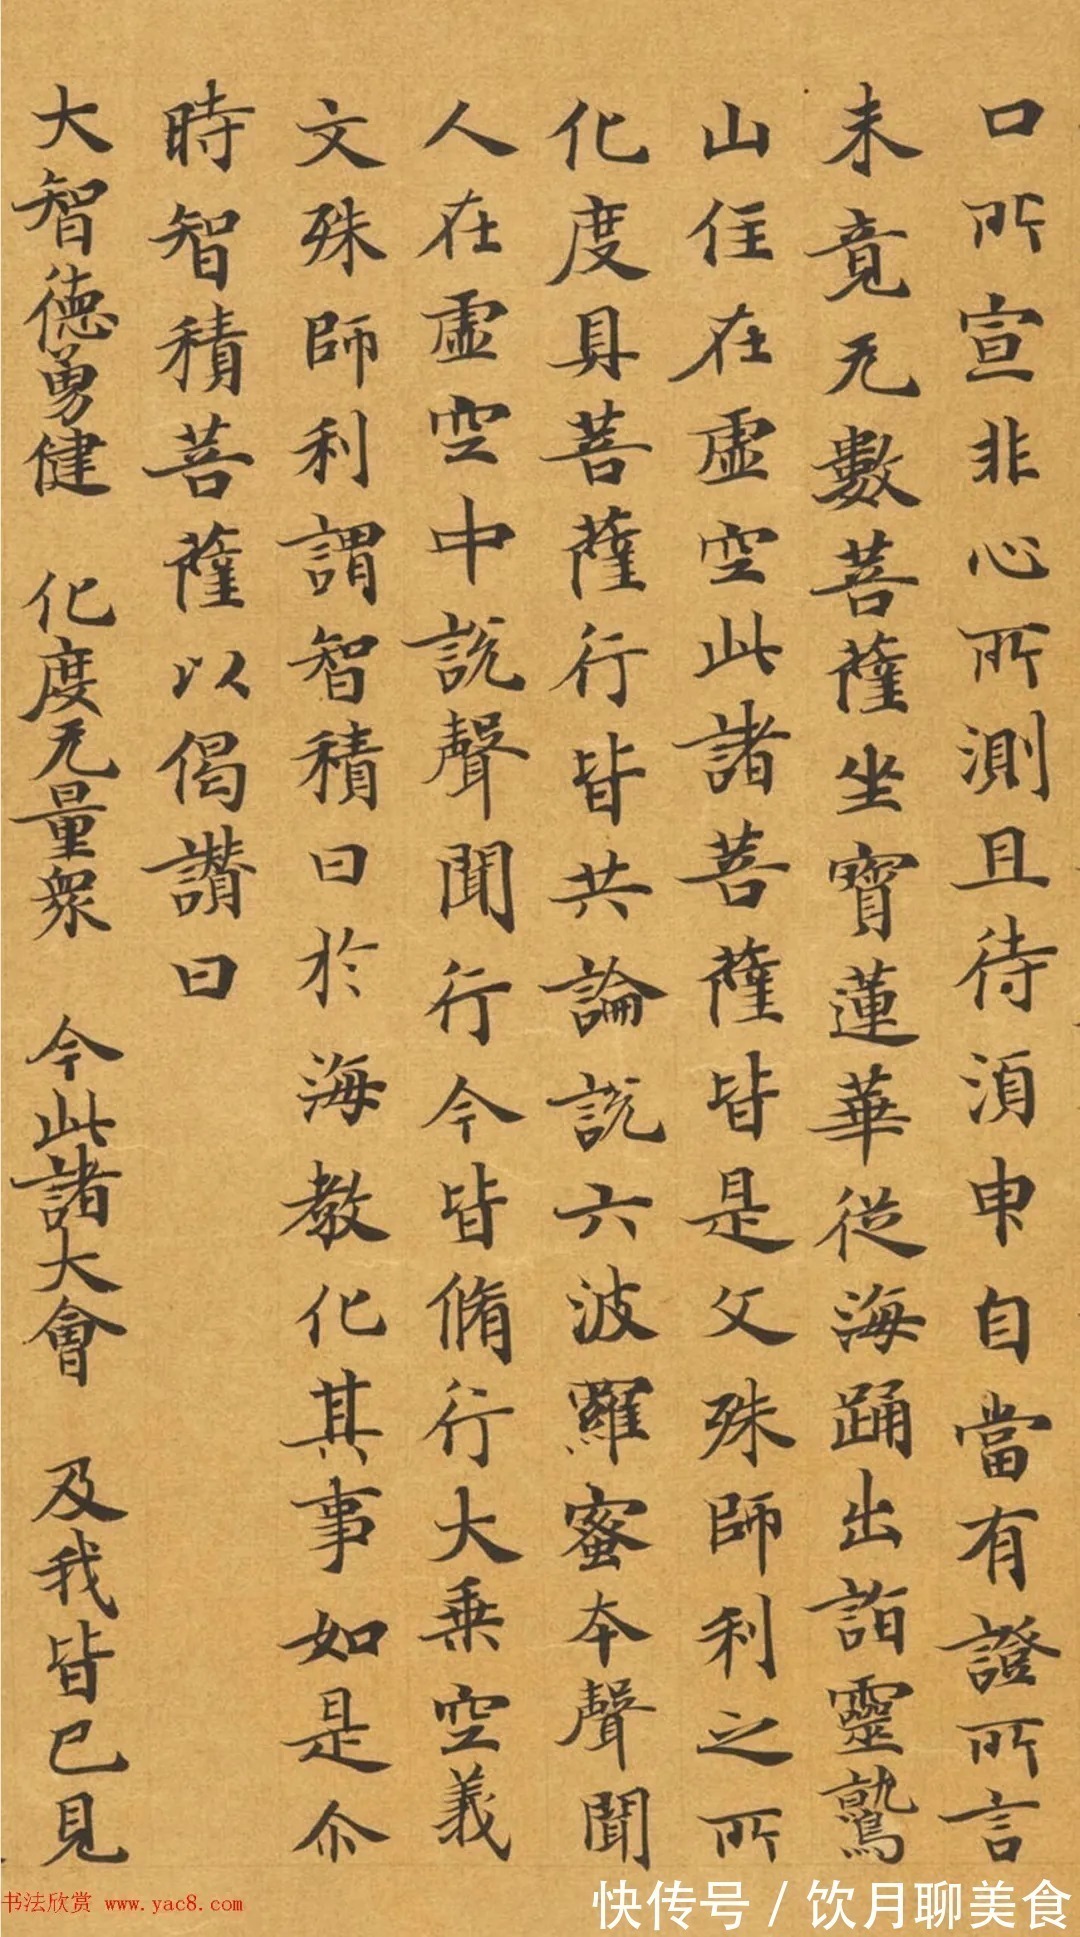 口所宣非心所測且待須申自當有證所言
未竟无數菩薩坐寶蓮華從海踊出詣靈鷲
山住在虛空此諸菩薩皆是文殊師利之所
化度具菩薩行皆共論說六波羅蜜本聲聞
人在虛空中說聲聞行今皆脩行大乘空義
文殊師利謂智積曰於海教化其事如是尒
時智積菩薩以偈讚曰
大智德勇健 化度无量眾 今此諸大會 及我皆已見
书法欣赏 www.yac8.com
快传号 / 饮月聊美食